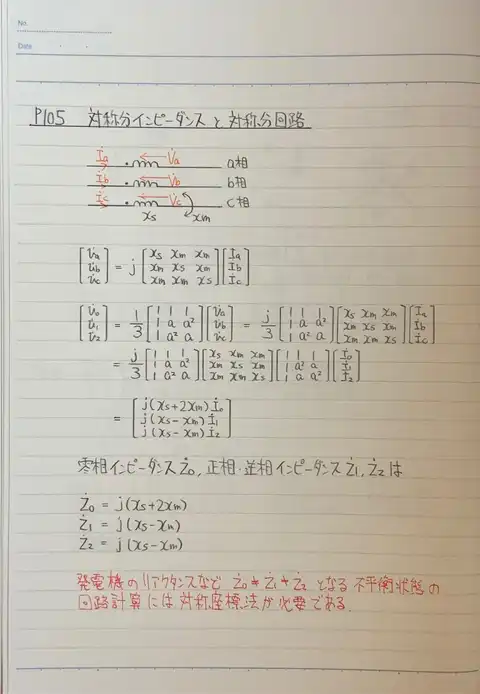 No.
Date
P105 対称分インピーダンスと対称分回路
İa V̇a a相
İb V̇b b相
İc V̇c c相
xs xm
[V̇a V̇b V̇c] = j [xs xm xm / xm xs xm / xm xm xs] [İa İb İc]
[V̇0 V̇1 V̇2] = 1/3 [1 1 1 / 1 a a² / 1 a² a] [V̇a V̇b V̇c] = j/3 [1 1 1 / 1 a a² / 1 a² a] [xs xm xm / xm xs xm / xm xm xs] [İa İb İc]
= j/3 [1 1 1 / 1 a a² / 1 a² a] [xs xm xm / xm xs xm / xm xm xs] [1 1 1 / 1 a² a / 1 a a²] [İ0 İ1 İ2]
= [j(xs+2xm)İ0 / j(xs-xm)İ1 / j(xs-xm)İ2]
零相インピーダンスŻ0, 正相・逆相インピーダンスŻ1, Ż2は
Ż0 = j(xs+2xm)
Ż1 = j(xs-xm)
Ż2 = j(xs-xm)
発電機のリアクタンスなど Ż0≠Ż1≠Ż2 となる不平衡状態の
回路計算には対称座標法が必要である.